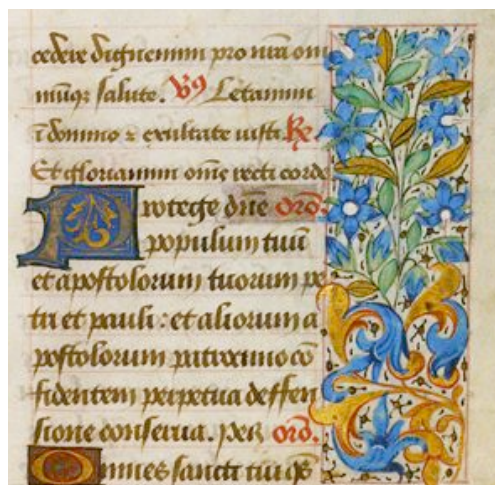 cedere dignemini pro nr̄a om
niuqȝ salute. V9 Letamini
ī domino ⁊ exultate iusti. Re
Et gloriamini om̄es recti corde
Protege dn̄e orō.
populum tuū
et apostolorum tuorum pe
tri et pauli : et aliorum a
postolorum patrocinio cō
fidentem perpetua deffen
sione conserua. per orō.
Omnes sancti tui qs̄